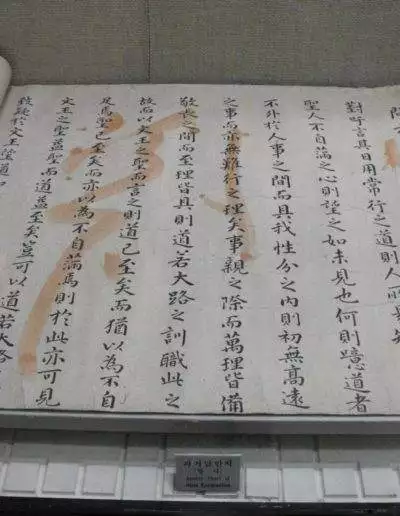 對吁言其日用常行之道則人所
聖人不自滿之心則望之如未見也何則道者
不外於人事之間而具我性分之內則初無高遠
之事而亦無難行之理矣事親之際而萬理皆備
敬長之間而至理皆具則道若大路之訓職此之
故而以文王之聖而言之則道已至矣而猶以為不自
足焉聖已至矣而亦以為不自滿焉則於此亦可見
文王之聖益聖而道益至矣豈可以道若大路
致疑於文王望道
과거답안지
Answer Sheet of
State Examination